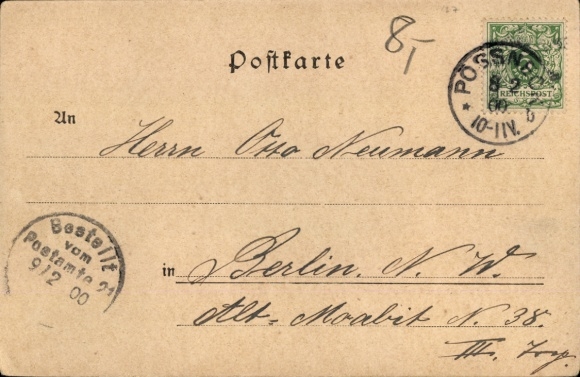 8,-
Postkarte
REICHSPOST
PÖSSNECK
8 2
00
10-11V.
An Herrn Otto Neumann
Bestellt
vom
Postamte 21
9/2 00
in Berlin. N. W.
Alt-Moabit N. 38.
III. Trp.